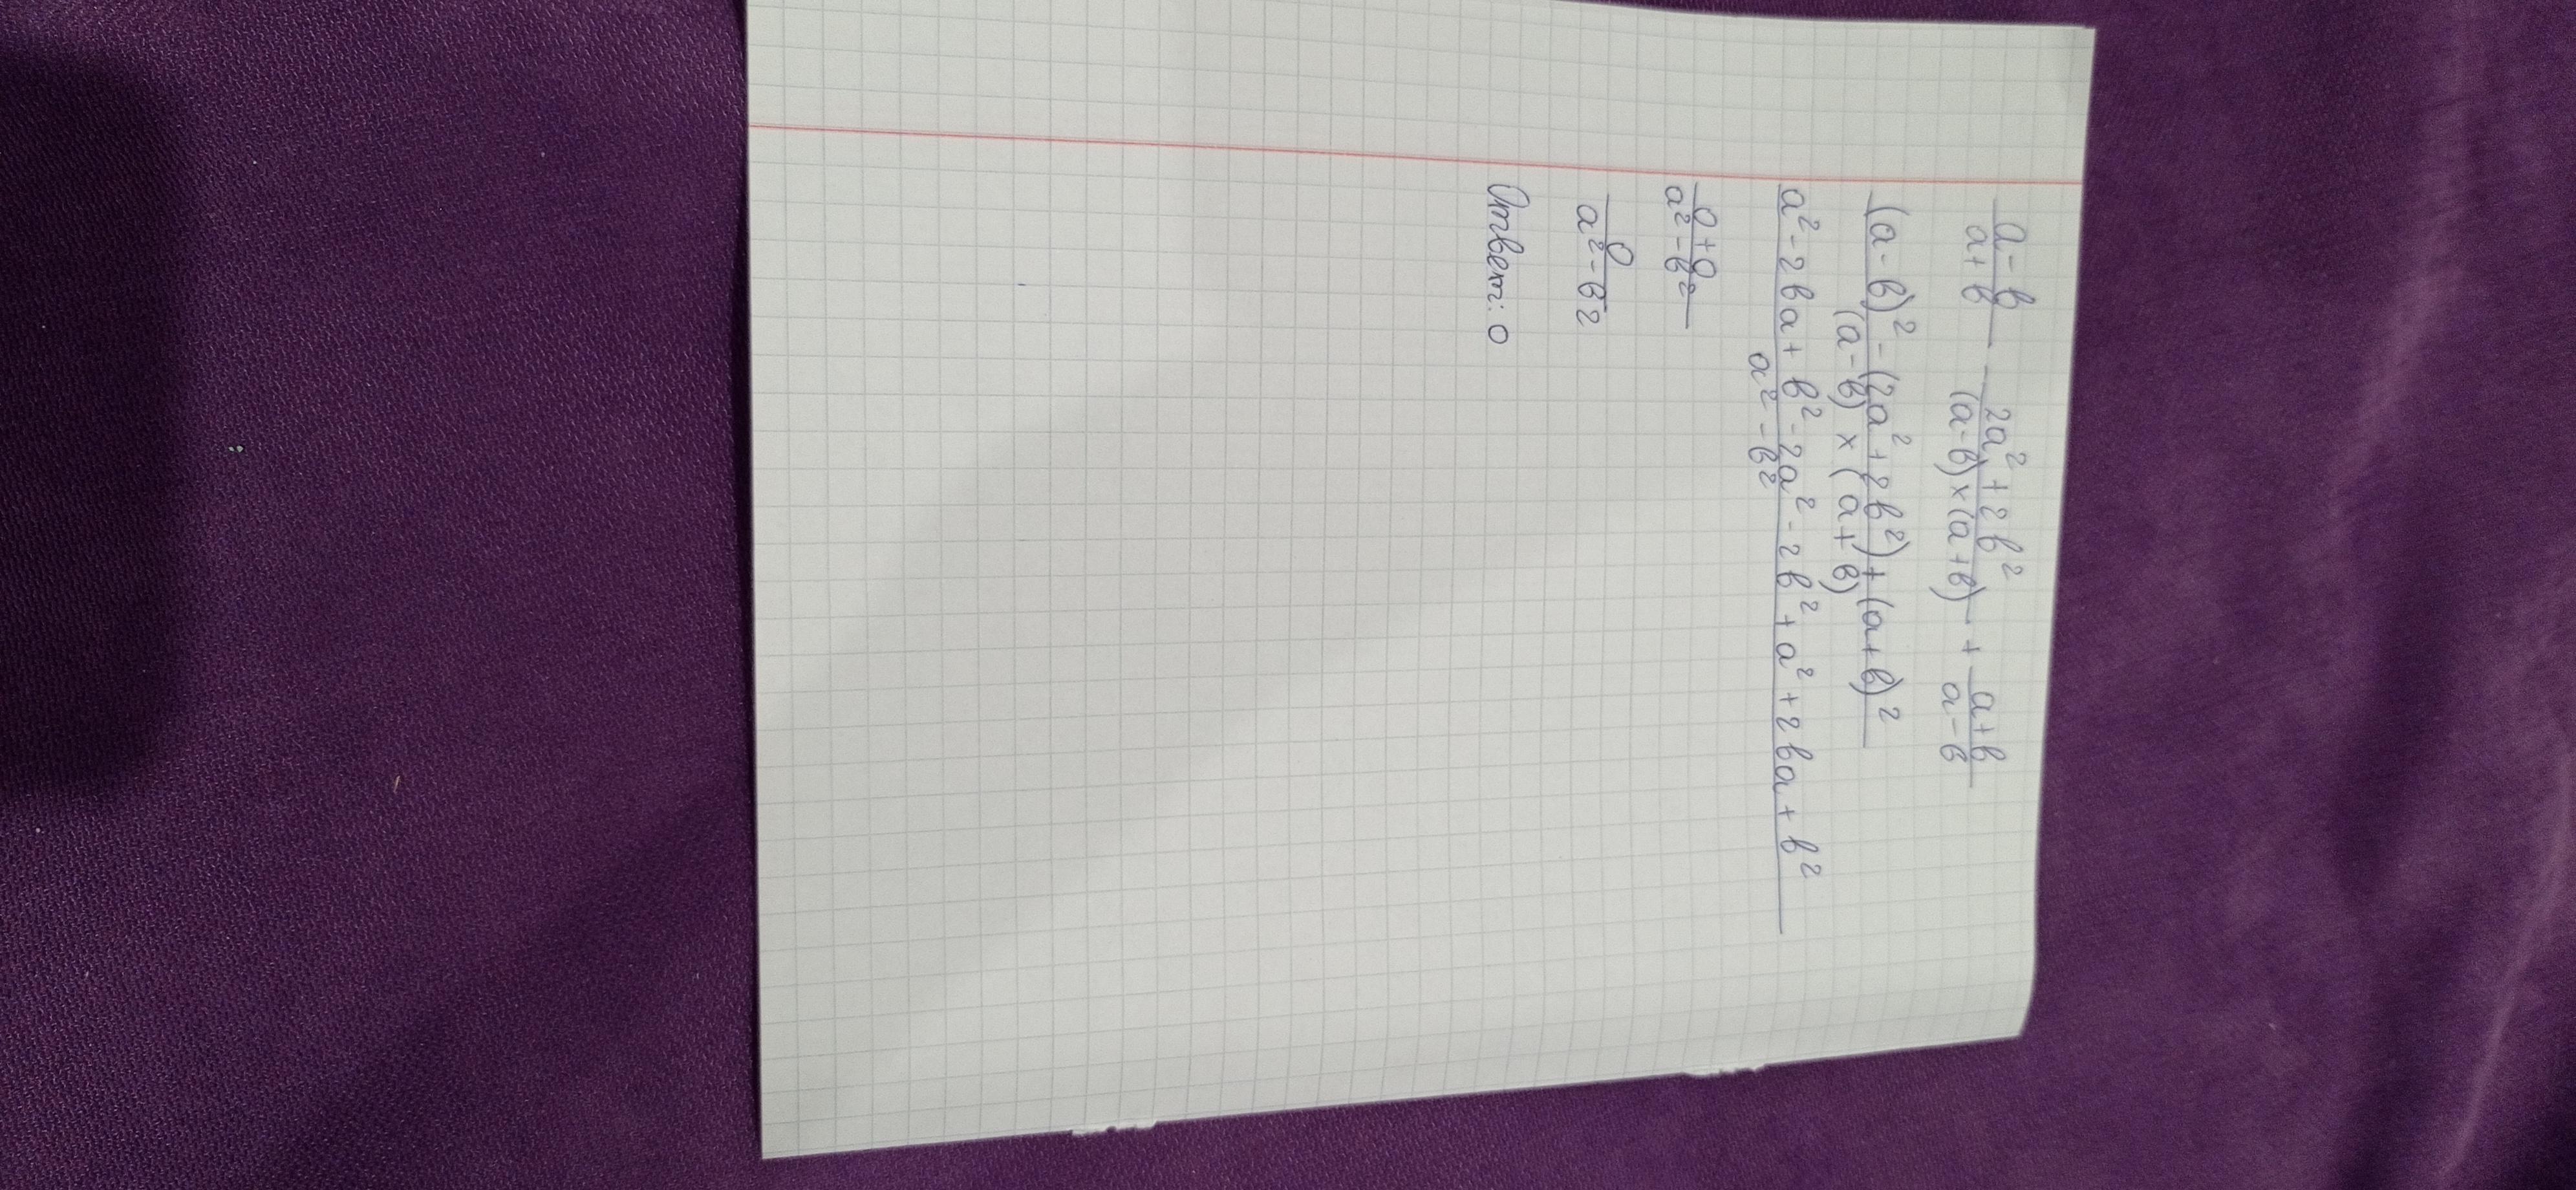 a-b/a+b - 2a²+2b²/(a-b)×(a+b) + a+b/a-b
(a-b)²-(2a²+2b²)+(a+b)²/(a-b)×(a+b)
a²-2ba+b²-2a²-2b²+a²+2ba+b²/a²-b²
0+0/a²-b²
0/a²-b²
Ответ: 0